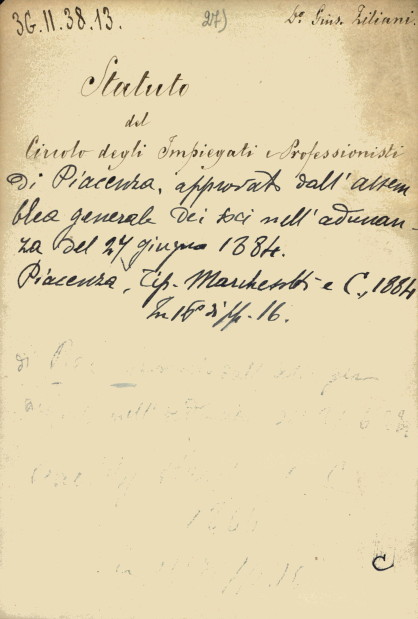 3G.II.38.13.
27)
Dr Gius. Ziliani.
Statuto
del
Circolo degli Impiegati e Professionisti
di Piacenza, approvato dall'assem-
blea generale dei soci nell'adunan-
za del 27 giugno 1884.
Piacenza, Tip. Marchesotti e C., 1884
In 16° di pp. 16.
di
nell'
C